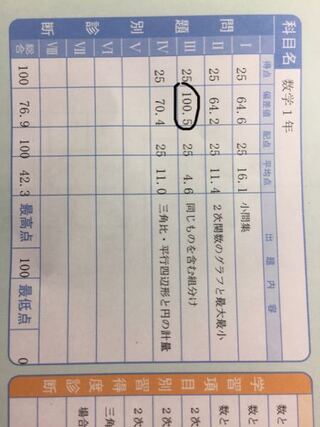 科目名 数学1年
問題別診断 得点 偏差値 配点 平均点 出題内容
I 25 64.6 25 16.1 小問集
II 25 64.2 25 11.4 2次関数のグラフと最大最小
III 25 100.5 25 4.6 同じものを含む組分け
IV 25 70.4 25 11.0 三角比・平行四辺形と円の計量
V
VI
VII
VIII
総合 100 76.9 100 42.3 最高点 100 最低点 0
学習項目別習得度診断
数と
数と
2次
2次
三角
場合